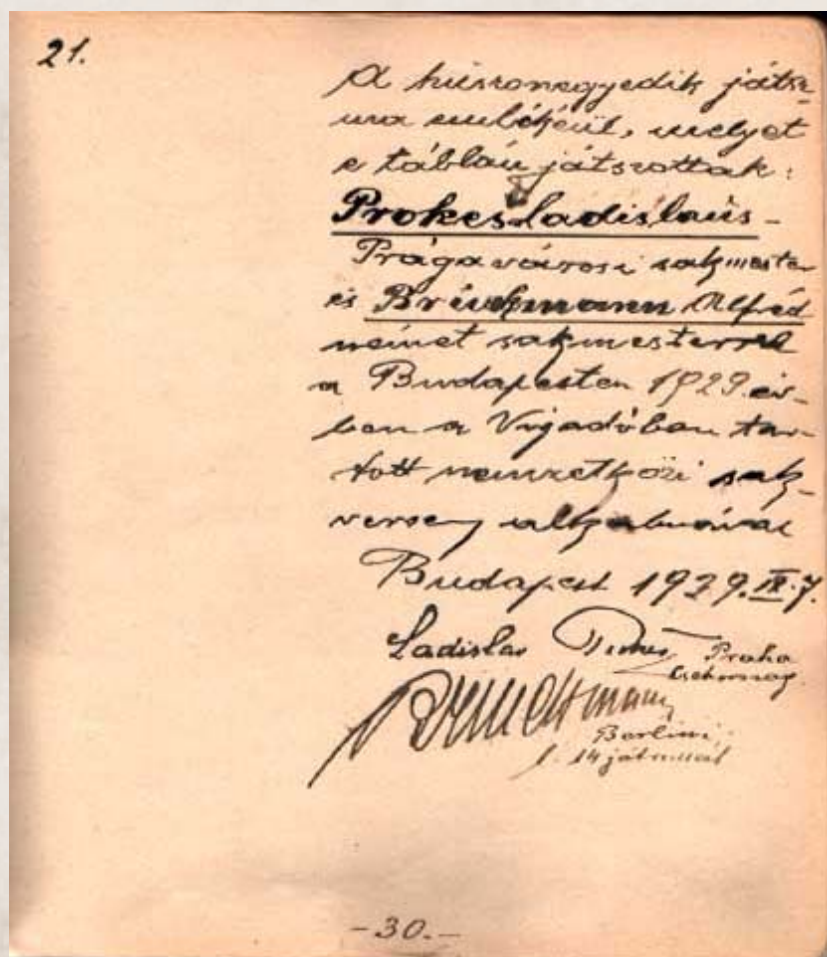 21.
A huszonegyedik játsz-
ma emlékéül, melyet
e táblán játszottak:
Prokes Ladislaus -
Prága városi sakmester
és Brückmann Alfréd
német sakmesterrel
a Budapesten 1929. év-
ben a Vigadóban tar-
tott nemzetközi sak-
verseny alkalmával
Budapest 1929. IX. 7.
Ladislav Prokeš Praha
Csehország.
Brinckmann
Berlini
l. 14 játszmát
-30.-